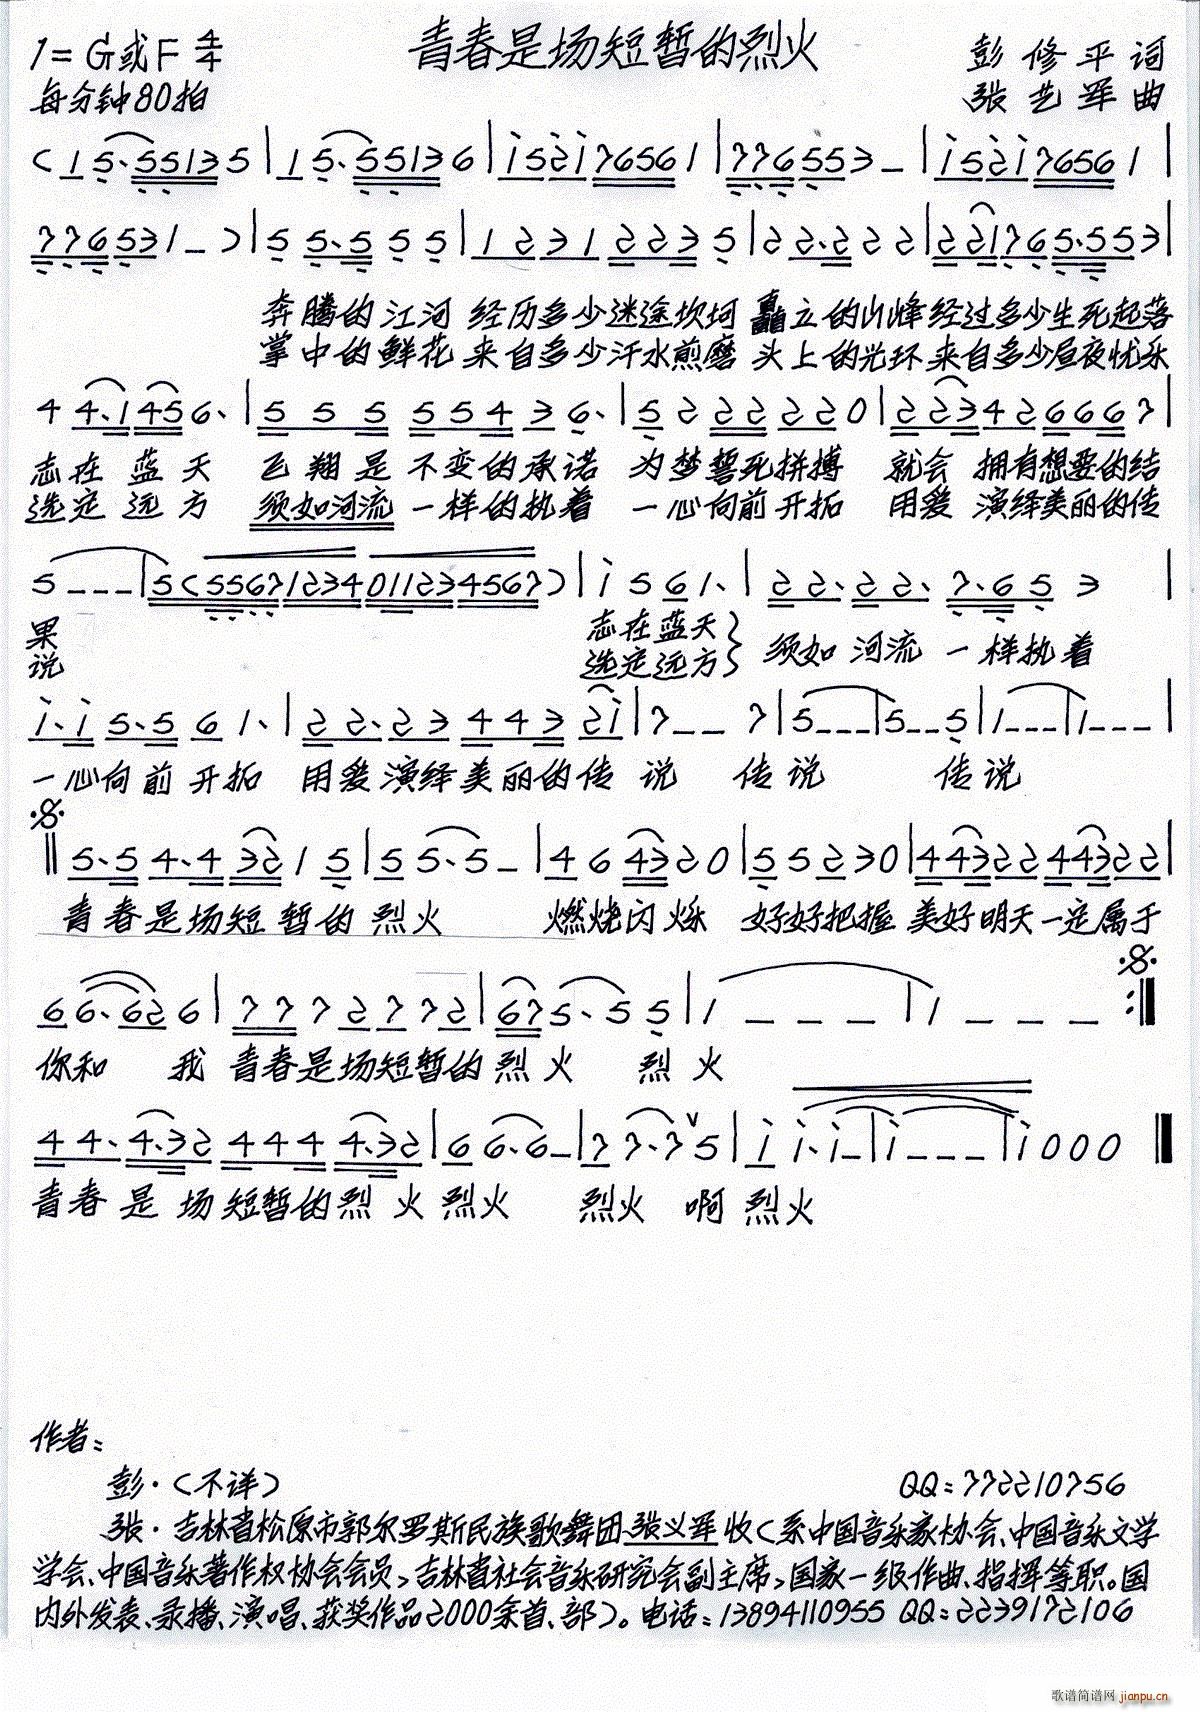 青春是场短暂的烈火
1=G或F 4/4
彭修平词
每分钟80拍
张艺军曲
(1 5·55135|15·55136|i52i76561|776553–|i52i76561|
776531–)|55·555|12312235|22·222|221765·553|
奔腾的江河 经历多少迷途坎坷 矗立的山峰经过多少生死起落
掌中的鲜花 来自多少汗水煎磨 头上的光环 来自多少昼夜忧乐
44·1456·|55555436·|5222220|223426667|
志在 蓝天 飞翔是 不变的承诺 为梦誓死拼搏 就会 拥有想要的结
选定 远方 须如河流 一样的执着 一心向前开拓 用爱 演绎美丽的传
5–––|5(55671234011234567)|i561·|22·22·7·653|
果 志在蓝天
说 选定远方} 须如 河流 一样执着
i·i5·561·|22·234432i|7––7|5–––|5––5|1–––|1–––|
一心向前开拓 用爱演绎美丽的传 说 传说 传说
𝄋
‖5·54·43215|55·5–|464320|55230|4432244322|
青春是场短暂的烈火 燃烧闪烁 好好把握 美好明天一定属于
𝄋
66·626|7772772|675·55|1–––|1–––:‖
你和 我 青春是场短暂的烈火 烈火
44·4·324444·32|66·6–|77·7∨5|ii·i–|i–––|i000‖
青春是场短暂的烈火烈火 烈火 啊烈火
作者:
彭·(不详) QQ:772210756
张·吉林省松原市郭尔罗斯民族歌舞团张义军收(系中国音乐家协会、中国音乐文学
学会、中国音乐著作权协会会员,吉林省社会音乐研究会副主席,国家一级作曲、指挥等职。国
内外发表、录播、演唱、获奖作品2000余首、部)。电话:13894110955 QQ:2239172106
歌谱简谱网 jianpu.cn